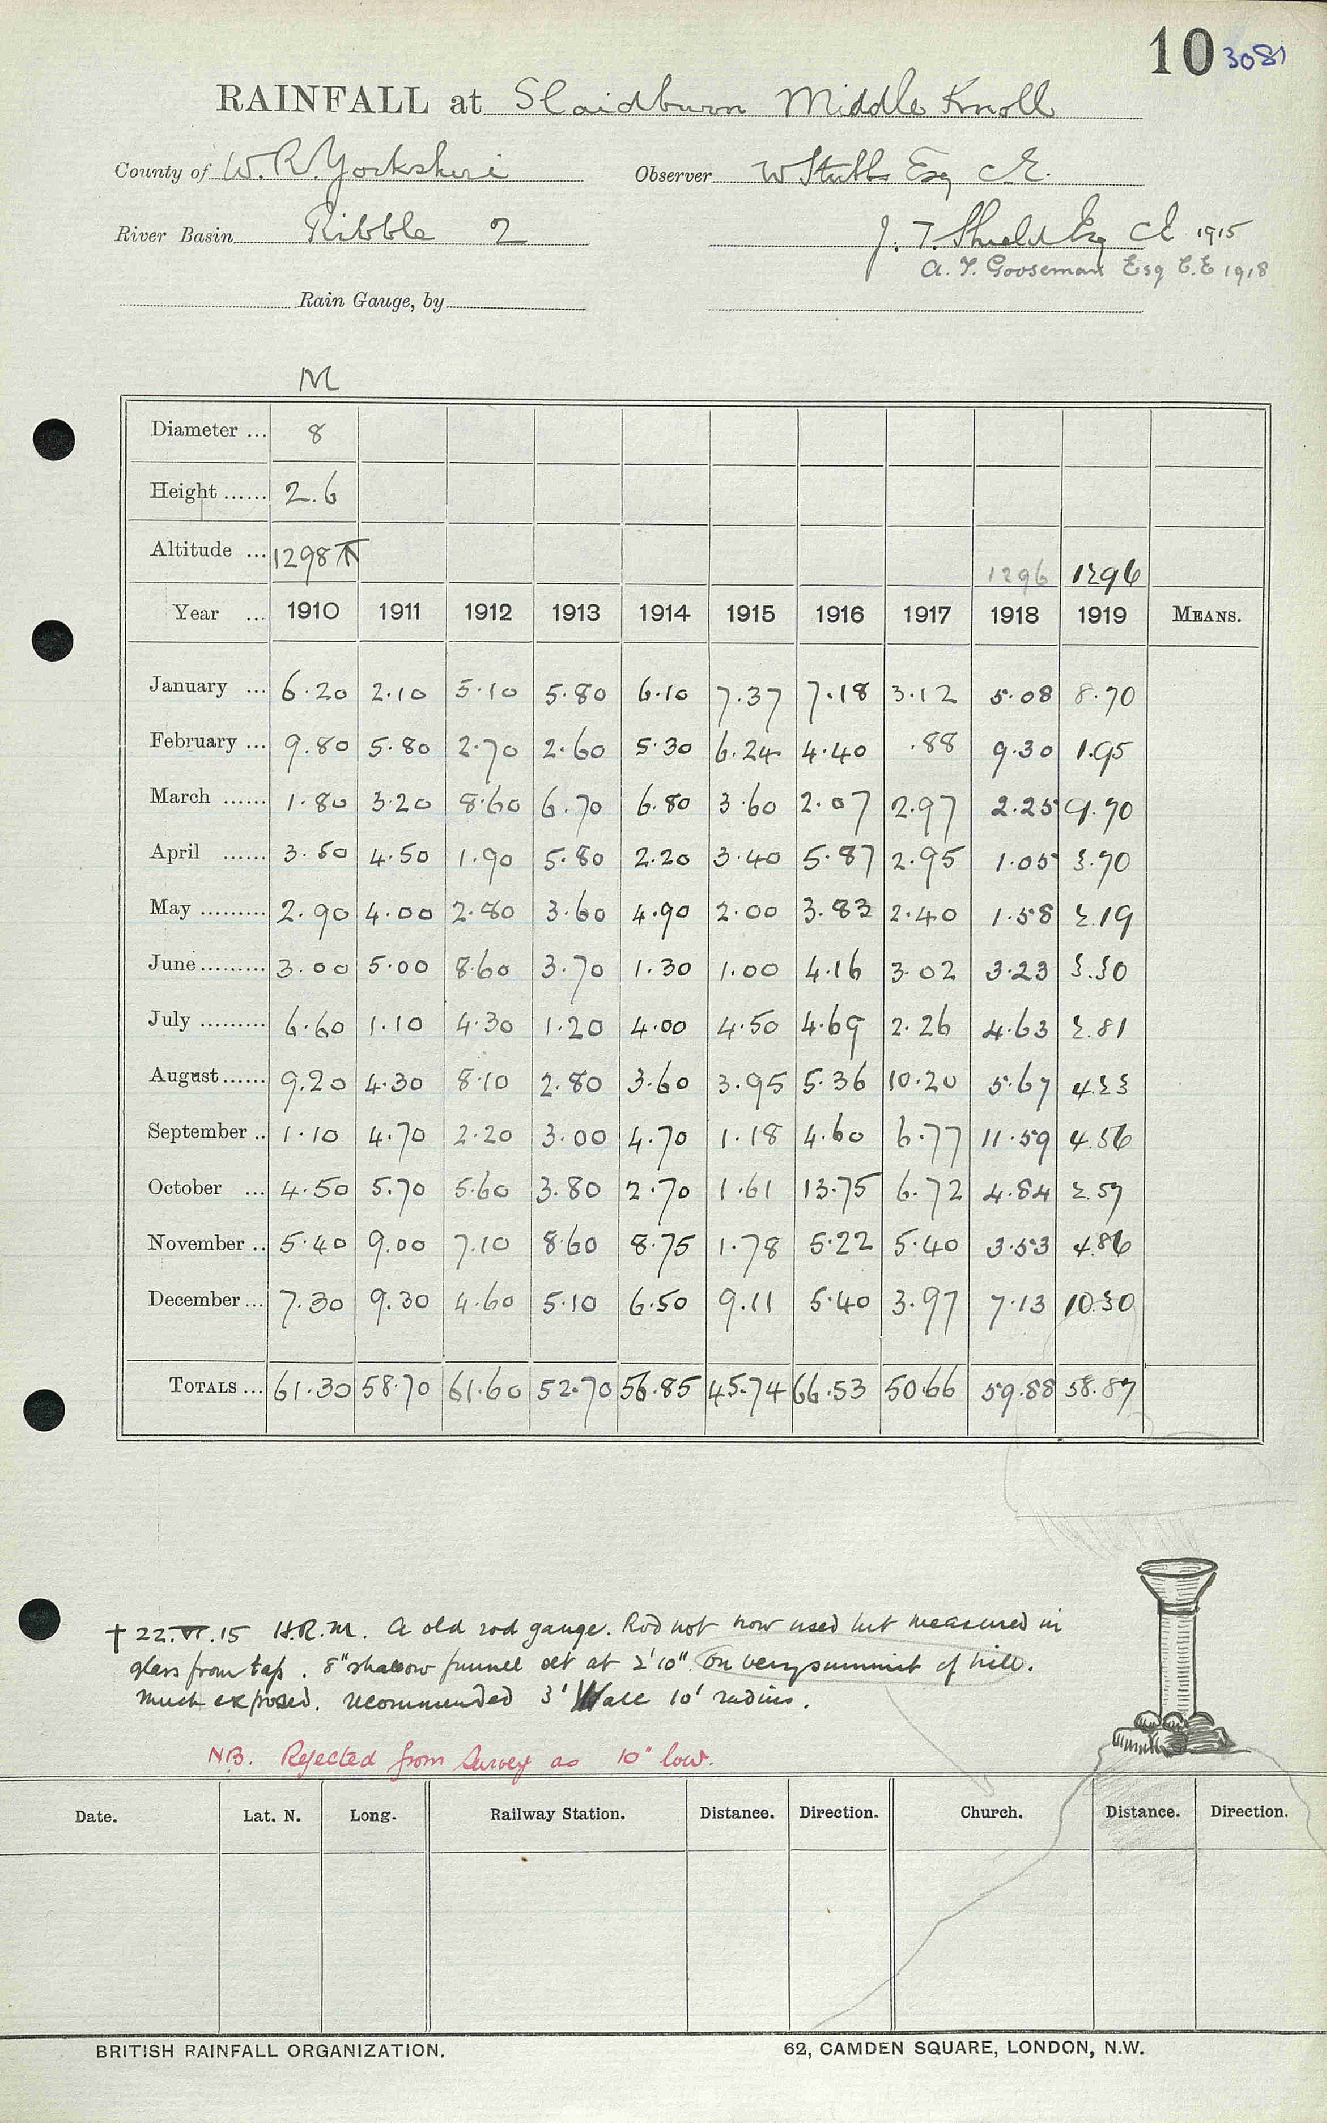 10 3081
RAINFALL at Slaidburn Middle Knoll
County of W. R. Yorkshire Observer W Stubbs Esq C.E.
River Basin Ribble 2 J. T. Shield Esq CE 1915
A. F. Gooseman Esq C.E 1918
Rain Gauge, by
M
Diameter ... 8
Height ...... 2.6
Altitude ... 1298 1296 1296
Year ... 1910 1911 1912 1913 1914 1915 1916 1917 1918 1919 MEANS.
January ... 6.20 2.10 5.10 5.80 6.10 7.37 7.18 3.12 5.08 8.70
February ... 9.80 5.80 2.70 2.60 5.30 6.24 4.40 .88 9.30 1.95
March ...... 1.80 3.20 8.60 6.70 6.80 3.60 2.07 2.97 2.25 9.70
April ...... 3.50 4.50 1.90 5.80 2.20 3.40 5.87 2.95 1.05 3.70
May ......... 2.90 4.00 2.80 3.60 4.90 2.00 3.83 2.40 1.58 2.19
June ......... 3.00 5.00 8.60 3.70 1.30 1.00 4.16 3.02 3.23 3.30
July ......... 6.60 1.10 4.30 1.20 4.00 4.50 4.69 2.26 4.63 2.81
August ...... 9.20 4.30 8.10 2.80 3.60 3.95 5.36 10.20 5.67 4.23
September .. 1.10 4.70 2.20 3.00 4.70 1.18 4.60 6.77 11.59 4.56
October ... 4.50 5.70 5.60 3.80 2.70 1.61 13.75 6.72 4.84 2.57
November .. 5.40 9.00 7.10 8.60 8.75 1.78 5.22 5.40 3.53 4.86
December ... 7.30 9.30 4.60 5.10 6.50 9.11 5.40 3.97 7.13 10.30
TOTALS ... 61.30 58.70 61.60 52.70 56.85 45.74 66.53 50.66 59.88 58.87
† 22.VI.15 H.R.M. A old rod gauge. Rod not now used but measured in
glass from tap. 8" shallow funnel set at 2'10" on very summit of hill.
Much exposed. recommended 3' Wall 10' radius.
NB. Rejected from Survey as 10" low.
Date. Lat. N. Long. Railway Station. Distance. Direction. Church. Distance. Direction.
BRITISH RAINFALL ORGANIZATION. 62, CAMDEN SQUARE, LONDON, N.W.